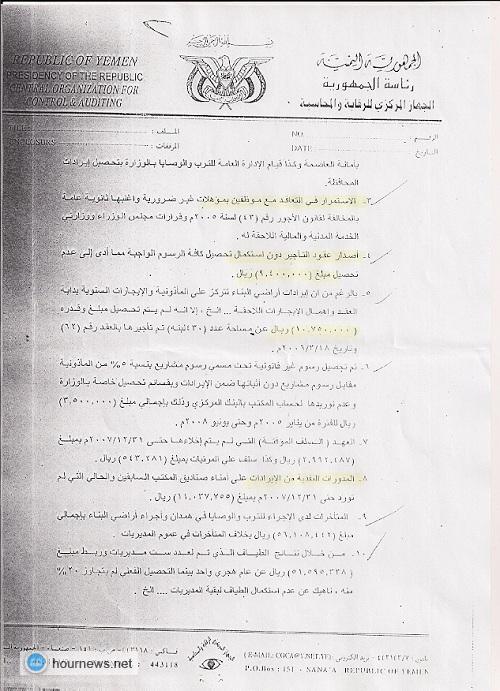 بسم الله الرحمن الرحيم
REPUBLIC OF YEMEN
PRESIDENCY OF THE REPUBLIC
CENTRAL ORGANIZATION FOR
CONTROL & AUDITING
الجمهورية اليمنية
رئاسة الجمهورية
الجهاز المركزي للرقابة والمحاسبة
NO.
DATE
الرقم :
التاريخ
الملف :
المرفقات :
بأمانة العاصمة وكذا قيام الإدارة العامة للترب والوصايا بالوزارة بتحصيل إيرادات
المحافظة.
٣- الاستمرار في التعاقد مع موظفين بمؤهلات غير ضرورية واغلبها ثانوية عامة
بالمخالفة لقانون الأجور رقم (٤٣) لسنة ٢٠٠٥م وقرارات مجلس الوزراء ووزارتي
الخدمة المدنية والمالية اللاحقة له .
٤- أصدار عقود التأجير دون استكمال تحصيل كافة الرسوم الواجبة مما أدى إلى عدم
تحصيل مبلغ (٩,٤٠٠,٠٠٠) ريال .
٥- بالرغم من ان إيرادات أراضي البناء تتركز على المأذونية والإيجارات السنوية بداية
العقد واهمال الإيجارات اللاحقة ... الخ ، إلا انه لم يتم تحصيل مبلغ وقدره
(١٠,٧٥٠,٠٠٠) ريال عن مساحة عدد (٤٣٠لبنه) تم تأجيرها بالعقد رقم (٦٢)
وتاريخ ٢٠٠٦/٣/١٨م.
٦- تم تحصيل رسوم غير قانونية تحت مسمى رسوم مشاريع بنسبة ٥% من المأذونية
مقابل رسوم مشاريع دون أثباتها ضمن الإيرادات وبقسائم تحصيل خاصة بالوزارة
وعدم توريدها لحساب المكتب بالبنك المركزي وذلك بإجمالي مبلغ (٣,٥٠٠,٠٠٠)
ريال للفترة من يناير ٢٠٠٥م وحتى يونيو ٢٠٠٨م.
٧- العهد ( السلف المؤقتة) التي لم يتم إخلاءها حتى ٢٠٠٧/١٢/٣١م بمبلغ
(٢,٩٩٢,٤٨٧) ريال وكذا سلف على المرتبات بمبلغ (٥٤٣,٢٨١) ريال.
٨- المدورات النقدية من الإيرادات على أمناء صناديق المكتب السابقين والحالي التي لم
تورد حتى ٢٠٠٧/١٢/٣١م بمبلغ (١١,٠٣٧,٧٥٥) ريال .
٩- المتأخرات لدى الاجراء للترب والوصايا في همدان وأجراء أراضي البناء بإجمالي
مبلغ (٥٦,١٠٨,٤٤٢) ريال بخلاف المتأخرات في عموم المديريات .
١٠- من خلال نتائج الطياف الذي تم لعدد ست مديريات وربط مبلغ
(٥١,٥٩٥,٣٣٨) ريال عن عام هجري واحد بينما التحصيل الفعلي لم يتجاوز ٢٠%
منه ، ناهيك عن عدم استكمال الطياف لبقية المديريات .... الخ .
(E-MAIL: COCA@Y.NET.YE)
P.O.Box : 151 - SANA'A REPUBLIC OF YEMEN
443118
hournews.net